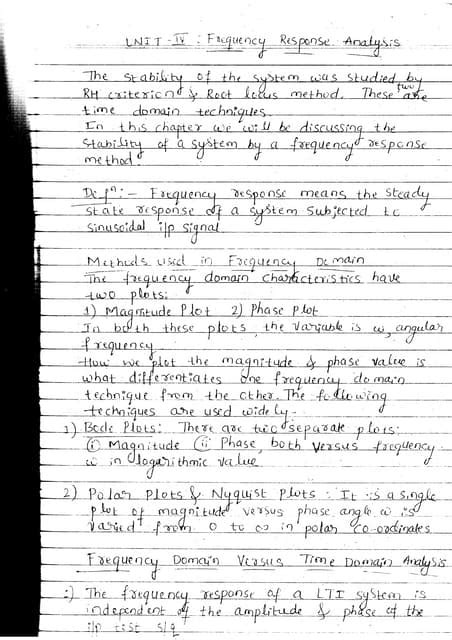 UNIT-IV : Frequency Response Analysis
The stability of the system was studied by
RH criterion & Root locus method. These two are
time domain techniques.
In this chapter we will be discussing the
stability of a system by a frequency response
method.
Defⁿ:- Frequency response means the steady
state response of a system subjected to
sinusoidal i/p signal
Methods used in Frequency Domain
The frequency domain characteristics have
two plots:
1) Magnitude Plot 2) Phase Plot
In both these plots, the variable is ω, angular
frequency
How we plot the magnitude & phase value is
what differentiates one frequency domain
technique from the other. The following
techniques are used widely.
1) Bode Plots: There are two separate plots:
(i) Magnitude (ii) Phase, both versus frequency
ω in logarithmic value
2) Polar Plots & Nyquist Plots: It is a single
plot of magnitude versus phase angle. ω is
varied from 0 to ∞ in polar co-ordinates
Frequency Domain Versus Time Domain Analysis
:) The frequency response of a LTI system is
independent of the amplitude & phase of the
i/p test s/g